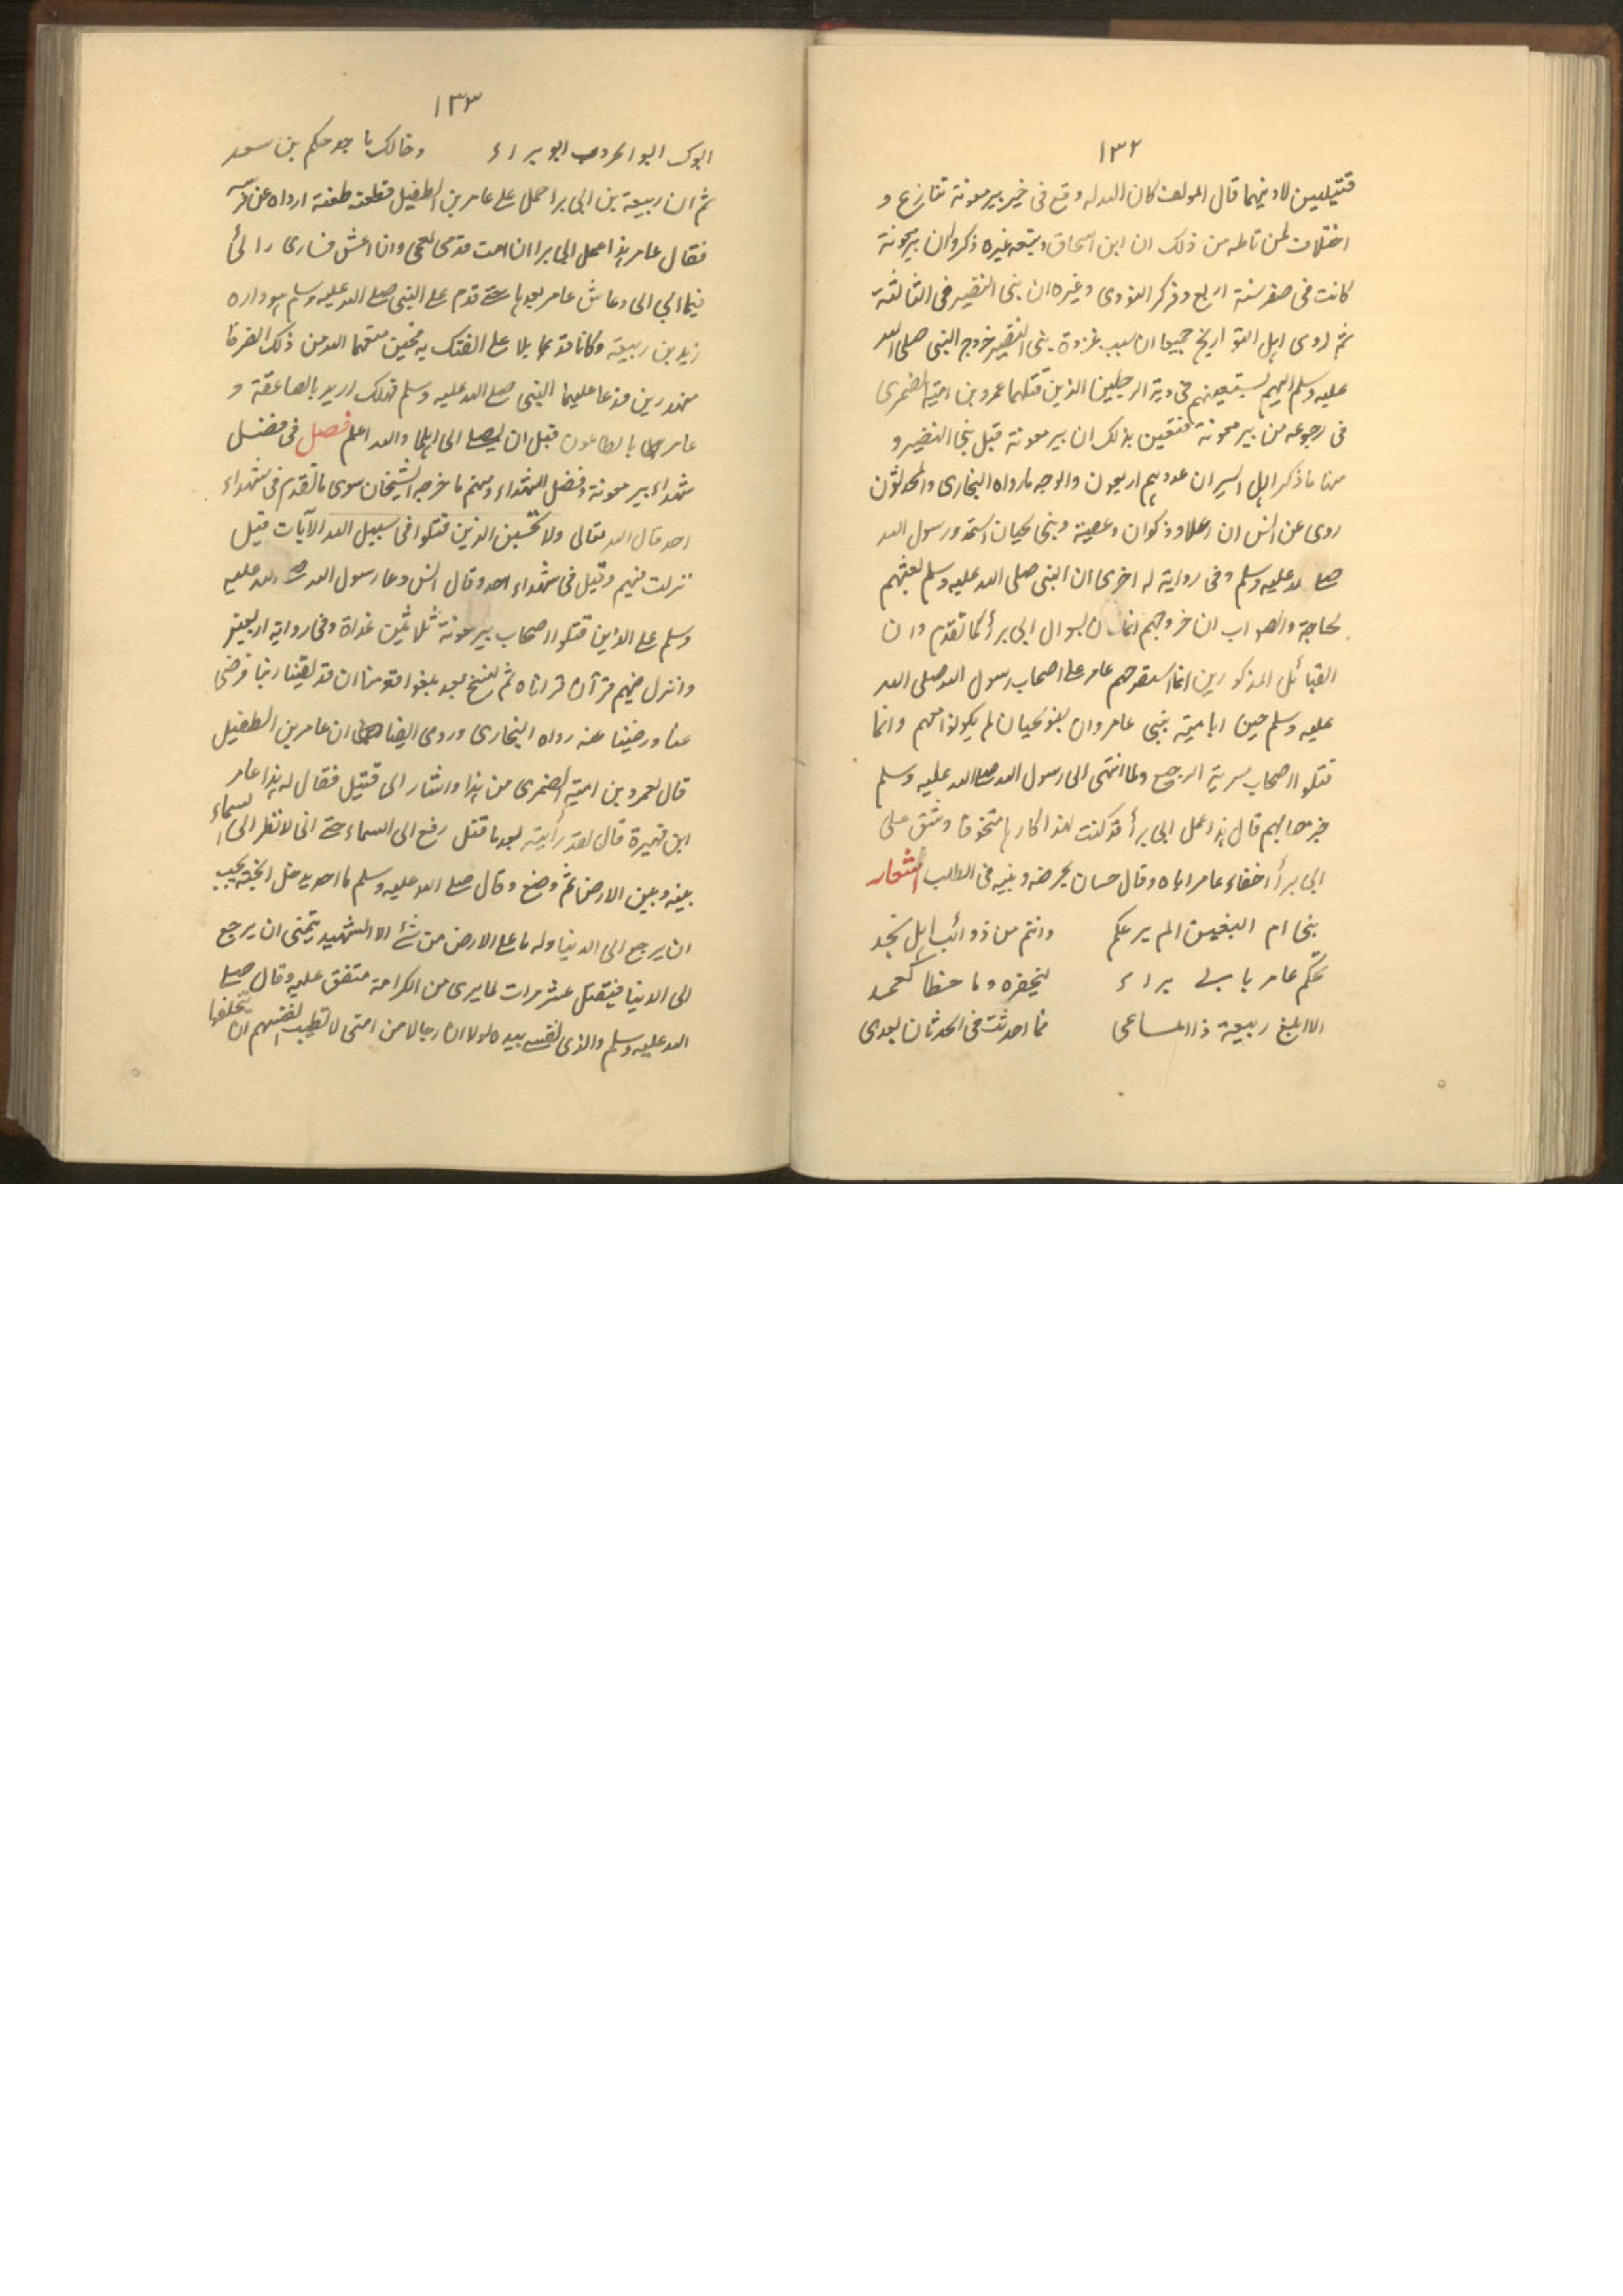 ١٣٢
قتيلين لادينهما قال المولف كان الله له وقع في خبر بير معونة تنازع و
اختلاف لمن تامله من ذلك ان ابن اسحاق وتبعه غيره ذكروا ان بير معونة
كانت في صفر سنة اربع وذكر النووى وغيره ان بنى النضير في الثالثة
ثم روى اهل التواريخ جميعا ان سبب غزوة بنى النضير خروج النبى صلى الله
عليه وسلم اليهم يستعينهم فى دية الرجلين الذين قتلهما عمرو بن امية الضمرى
فى رجوعه من بير معونة فتعين بذلك ان بير معونة قبل بنى النضير و
منها ما ذكر اهل السير ان عددهم اربعون والوجه ما رواه البخارى والمحدثون
روى عن انس ان رعلا وذكوان وعصية وبنى لحيان استمدو رسول الله
صلى الله عليه وسلم وفى رواية له اخرى ان النبى صلى الله عليه وسلم بعثهم
لحاجة والصواب ان خروجهم انما كان بسوال ابى برأ كما تقدم وان
القبائل المذكورين انما استصرخهم عامر على اصحاب رسول الله صلى الله
عليه وسلم حين ابا ميته بنى عامر وان بنو لحيان لم يكونوا معهم وانما
قتلوا اصحاب سرية الرجيع ولما انتهى الى رسول الله صلى الله عليه وسلم
خبر مصابهم قال هذا عمل ابى برأ قد كنت لهذا كارها متخوفا وشق على
ابى برأ اخفاء عامر اياه وقال حسان يحرضه وبنيه فى الطلب اشعار
بنى ام البنين الم يرعكم وانتم من ذوائب اهل نجد
تهكم عامر بابى براء ليخفره وما خطا كعمد
الا ابلغ ربيعة ذا المساعى فما احدثت فى الحدثان بعدى
١٣٣
ابوك ابوالحروب ابو براء وخالك ماجد حكم بن سعد
ثم ان ربيعة بن ابى برا حمل على عامر بن الطفيل فطعنه طعنة ارداه عن فرسه
فقال عامر هذا عمل ابى برا ان امت فدمى لعمى وان اعش فسارى رائى
فيما الى الى وعاش عامر بعدها حتى قدم على النبى صلى الله عليه وسلم هو واره
زيد بن ربيعة وكانا قد تمايلا على الفتك به فحين منعهما الله من ذلك انصرفا
مهددين فدعا عليهما النبى صلى الله عليه وسلم فهلك اربد بالصاعقة و
عامر بالطاعون قبل ان يصلا الى اهلهما والله اعلم فصل فى فضل
شهداء بير معونة وفضل الشهداء ومنهم ما خرجه الشيخان سوى ما تقدم فى شهداء
احد قال الله تعالى ولا تحسبن الذين قتلوا فى سبيل الله الآيات قيل
نزلت فيهم وقيل فى شهداء احد وقال انس دعا رسول الله صلى الله عليه
وسلم على الذين قتلوا اصحاب بير معونة ثلاثين غداة وفى رواية اربعين
وانزل فيهم قرآن قراناه ثم نسخ بعد بلغوا قومنا ان قد لقينا ربنا فرضى
عنا ورضينا عنه رواه البخارى وروى ايضا ان عامر بن الطفيل
قال لعمرو بن امية الضمرى من هذا واشار الى قتيل فقال له هذا عامر
ابن فهيرة قال لقد رأيته بعد ما قتل رفع الى السماء حتى انى لانظر الى السماء
بينه وبين الارض ثم وضع وقال صلى الله عليه وسلم ما احد يدخل الجنة يحب
ان يرجع الى الدنيا وله ما على الارض من شئ الا الشهيد يتمنى ان يرجع
الى الدنيا فيقتل عشر مرات لما يرى من الكرامة متفق عليه وقال صلى
الله عليه وسلم والذى نفسى بيده لولا ان رجالا من امتى لا تطيب انفسهم ان يتخلفوا